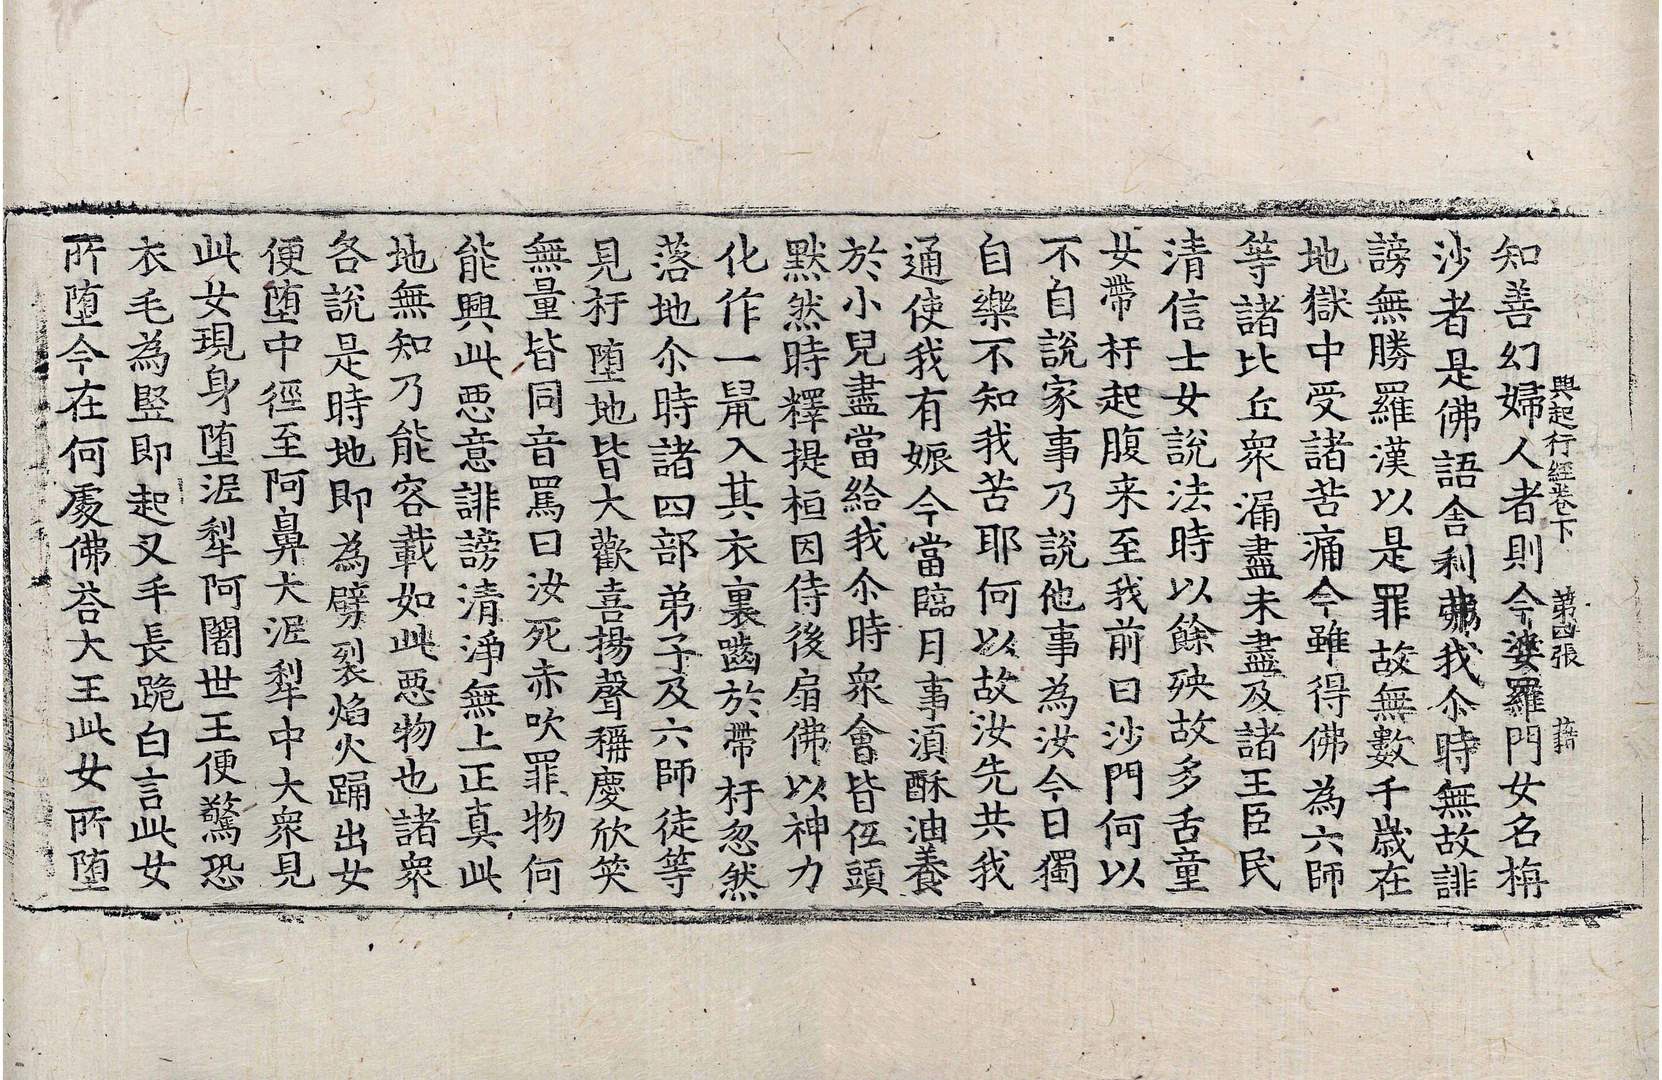 興起行經卷下 第四張 籍
知善幻婦人者則今婆羅門女名栴
沙者是佛語舍利弗我尒時無故誹
謗無勝羅漢以是罪故無數千歲在
地獄中受諸苦痛今雖得佛為六師
等諸比丘衆漏盡未盡及諸王臣民
清信士女說法時以餘殃故多舌童
女帶杅起腹来至我前曰沙門何以
不自說家事乃說他事為汝今日獨
自樂不知我苦耶何以故汝先共我
通使我有娠今當臨月事湏酥油養
於小兒盡當給我尒時衆會皆伍頭
默然時釋提桓因侍後扇佛以神力
化作一鼠入其衣裏齧於帶杅忽然
落地尒時諸四部弟子及六師徒等
見杅堕地皆大歡喜揚聲稱慶欣笑
無量皆同音罵曰汝死赤吹罪物何
能興此惡意誹謗清淨無上正真此
地無知乃能容載如此惡物也諸衆
各說是時地即為劈裂焰火踊出女
便堕中徑至阿鼻大泥犁中大衆見
此女現身堕泥犁阿闍世王便驚恐
衣毛為竪即起叉手長跪白言此女
所堕今在何處佛荅大王此女所堕